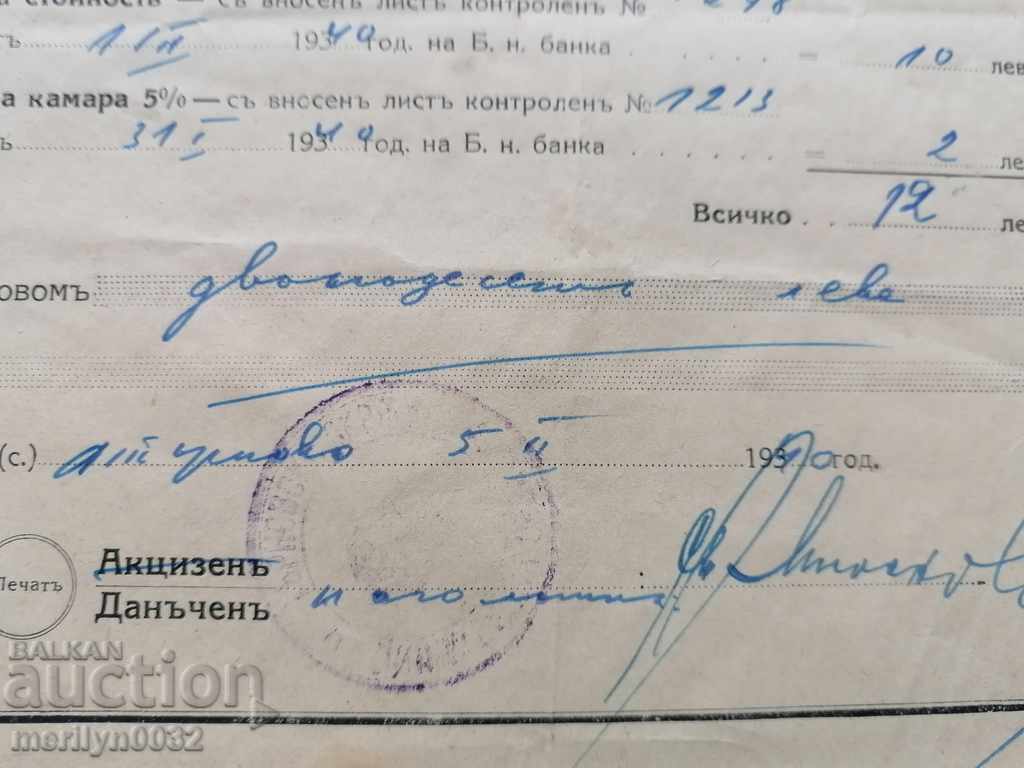 а стойность — съ вносенъ листъ контроленъ №
ъ 1 II 1940 год. на Б. н. банка . . . . = 10 лев
а камара 5% — съ вносенъ листъ контроленъ № 1213
ъ 31 I 1940 год. на Б. н. банка . . . . . . = 2 ле
Всичко . . 12 ле
овомъ дванадесеть лева
(с.) Търново 5 II 1940 год.
Печатъ
Акцизенъ
Данъченъ
BALKAN
auction
merilyn0032